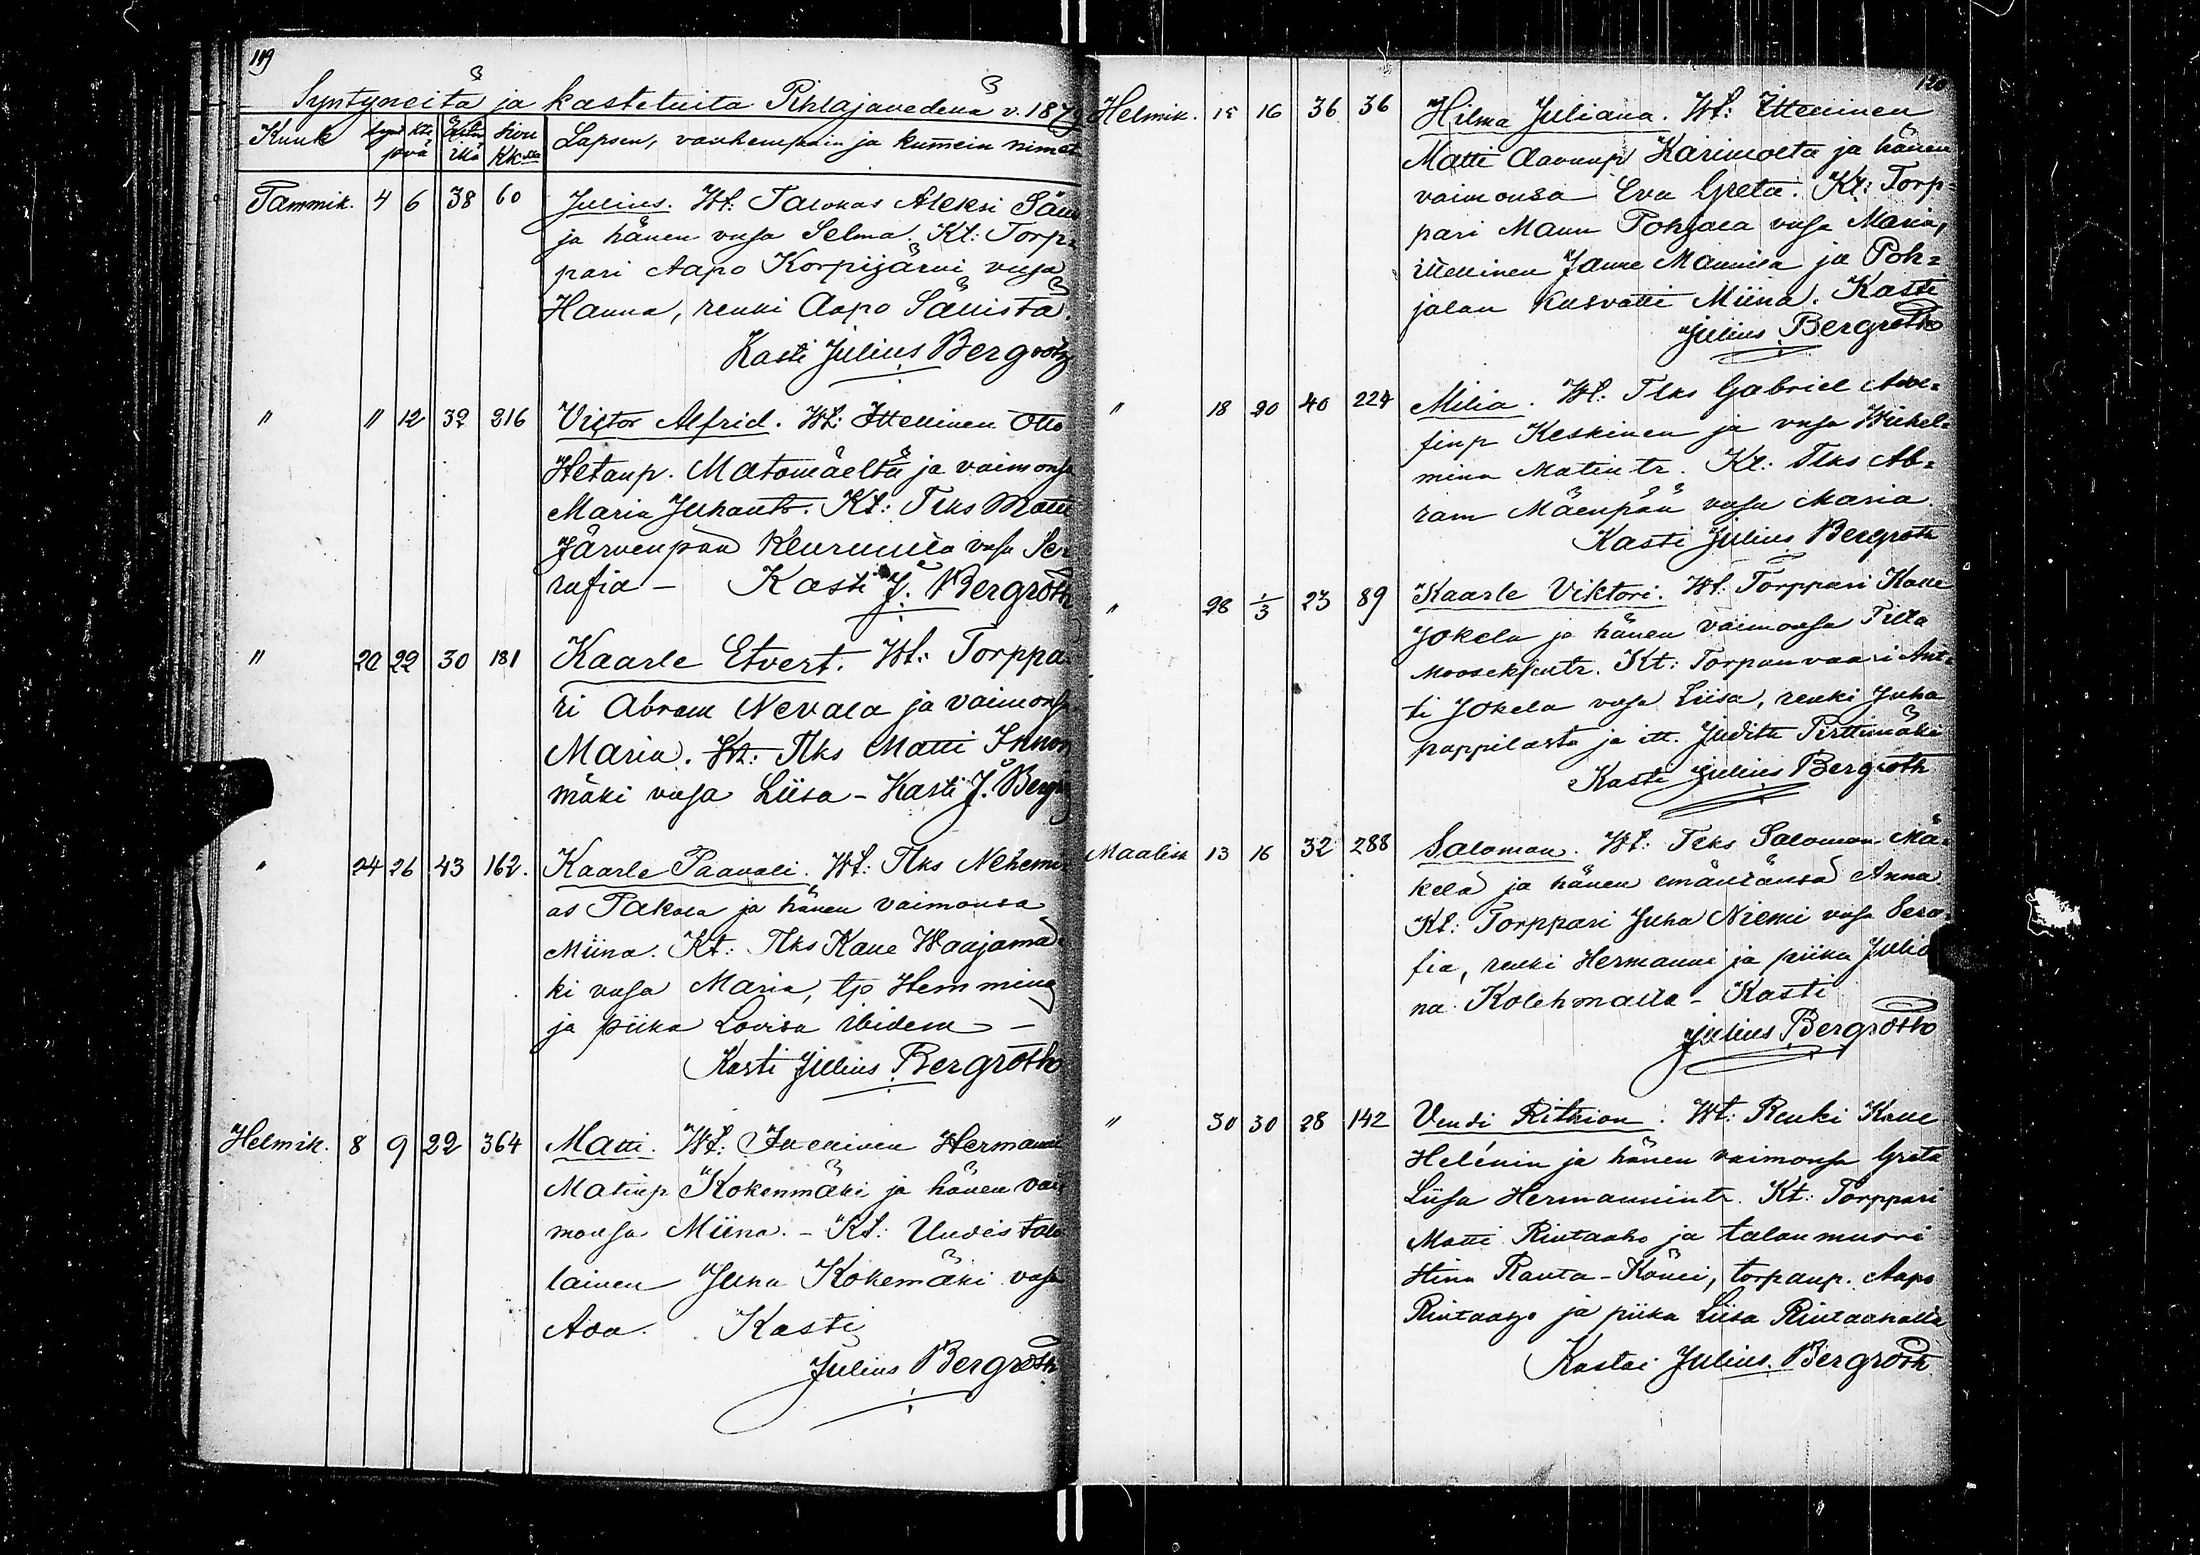 119
Syntyneitä ja kastetuita Pihlajavedenä v. 1879
Kuuk synt kte päiv Äitin ikä Sivu Kk:lla Lapsen, vanhempain ja kummein nimet
Tammik. 4 6 38 60 Julius. Wt: Talokas Aleksi Säni
ja hänen vmsa Selma. Kt: Torp=
pari Aapo Korpijärvi vmsa
Hanna, renki Aapo Sänistä.
Kasti Julius Bergroth
" 11 12 32 216 Victor Alfrid. Wt: Itellinen Otto
Hetanp. Matomäeltä ja vaimonsa
Maria Juhantr. Kt: Tlks Matti
Järvenpää Keuruulla vmsa Se=
rafia – Kasti J. Bergroth
" 20 22 30 181 Kaarle Etvert. Wt: Torppa=
ri Abram Nevala ja vaimonsa
Maria. Kt: Tlks Matti
mäki vmsa Liisa – Kasti J. Bergr
" 24 26 43 162. Kaarle Paavali. Wt: Tlks Nehemi
as Takala ja hänen vaimonsa
Miina. Kt: Tlks Kalle Waajamä=
ki vmsa Maria, tp Hemming
ja piika Lovisa ibidem –
Kasti Julius Bergroth
Helmik. 8 9 22 364 Matti. Wt: Itellinen Hermanni
Matinp Kokenmäki ja hänen vai
monsa Miina. – Kt: Uudistalo
lainen Juha Kokemäki vmsa
Ada. Kasti
Julius Bergroth
120
Helmik. 15 16 36 36 Hilma Juliana. Wt: Itteninen
Matti Aavunp Karimolta ja hänen
vaimonsa Eva Greta. Kt: Torp=
pari Manu Pohjala vmsa Maria,
itellinen Janne Mannisa ja Poh=
jalan kasvatti Miina. Kasti
Julius Bergroth
" 18 20 40 224 Milia. Wt: Tlks Gabriel
finp Keskinen ja vmsa Wilhel=
mina Matintr. Kt: Tlks Ab=
ram Mäenpää vmsa Maria.
Kasti Julius Bergroth
" 28 1/3 23 89 Kaarle Viktori. Wt: Torppari Kalle
Jokela ja hänen vaimonsa Tilta
Moosekfintr. Kt: Torpanvaari Ant=
ti Jokela vmsa Liisa, renki Juha
pappilasta ja itt. Judith Pirttimäki
Kasti Julius Bergroth
Maalisk 13 16 32 288 Saloman. Wt: Tlks Saloman Mä=
kelä ja hänen emäntänsä Anna.
Kt: Torppari Juha Niemi vmsa Sera=
fia, renki Hermanni ja piika Julia
na Kolehmalla – Kasti
Julius Bergroth
" 30 30 28 142 Vendi Rithion. Wt: Renki Kalle
Helénin ja hänen vaimonsa Greta
Liisa Hermannintr. Kt: Torppari
Matti Rintaaho ja talonmuori
Stina Ranta-Könni, torpanp. Aapo
Rintaaho ja piika Liisa Rintaaholla
Kastoi Julius Bergroth